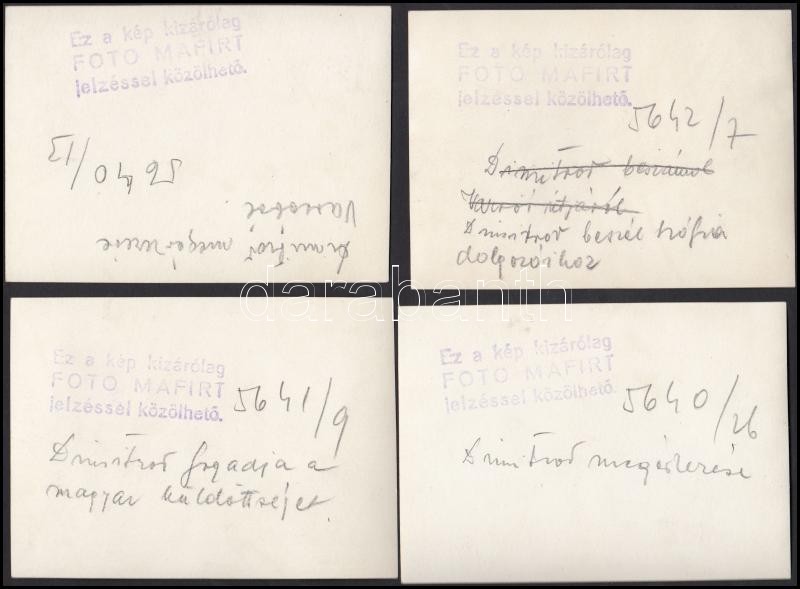 Ez a kép kizárólag
FOTO MAFIRT
jelzéssel közölhető.
5640/13
Dimitrov megérkezése
Ez a kép kizárólag
FOTO MAFIRT
jelzéssel közölhető.
5642/7
Dimitrov
Varsói útjáról
Dimitrov beszél szófia
dolgozóihoz
Ez a kép kizárólag
FOTO MAFIRT
jelzéssel közölhető.
5641/9
Dimitrov fogadja a
magyar küldöttséjet.
Ez a kép kizárólag
FOTO MAFIRT
jelzéssel közölhető.
5640/26
Dimitrov megérkezése
darabanth